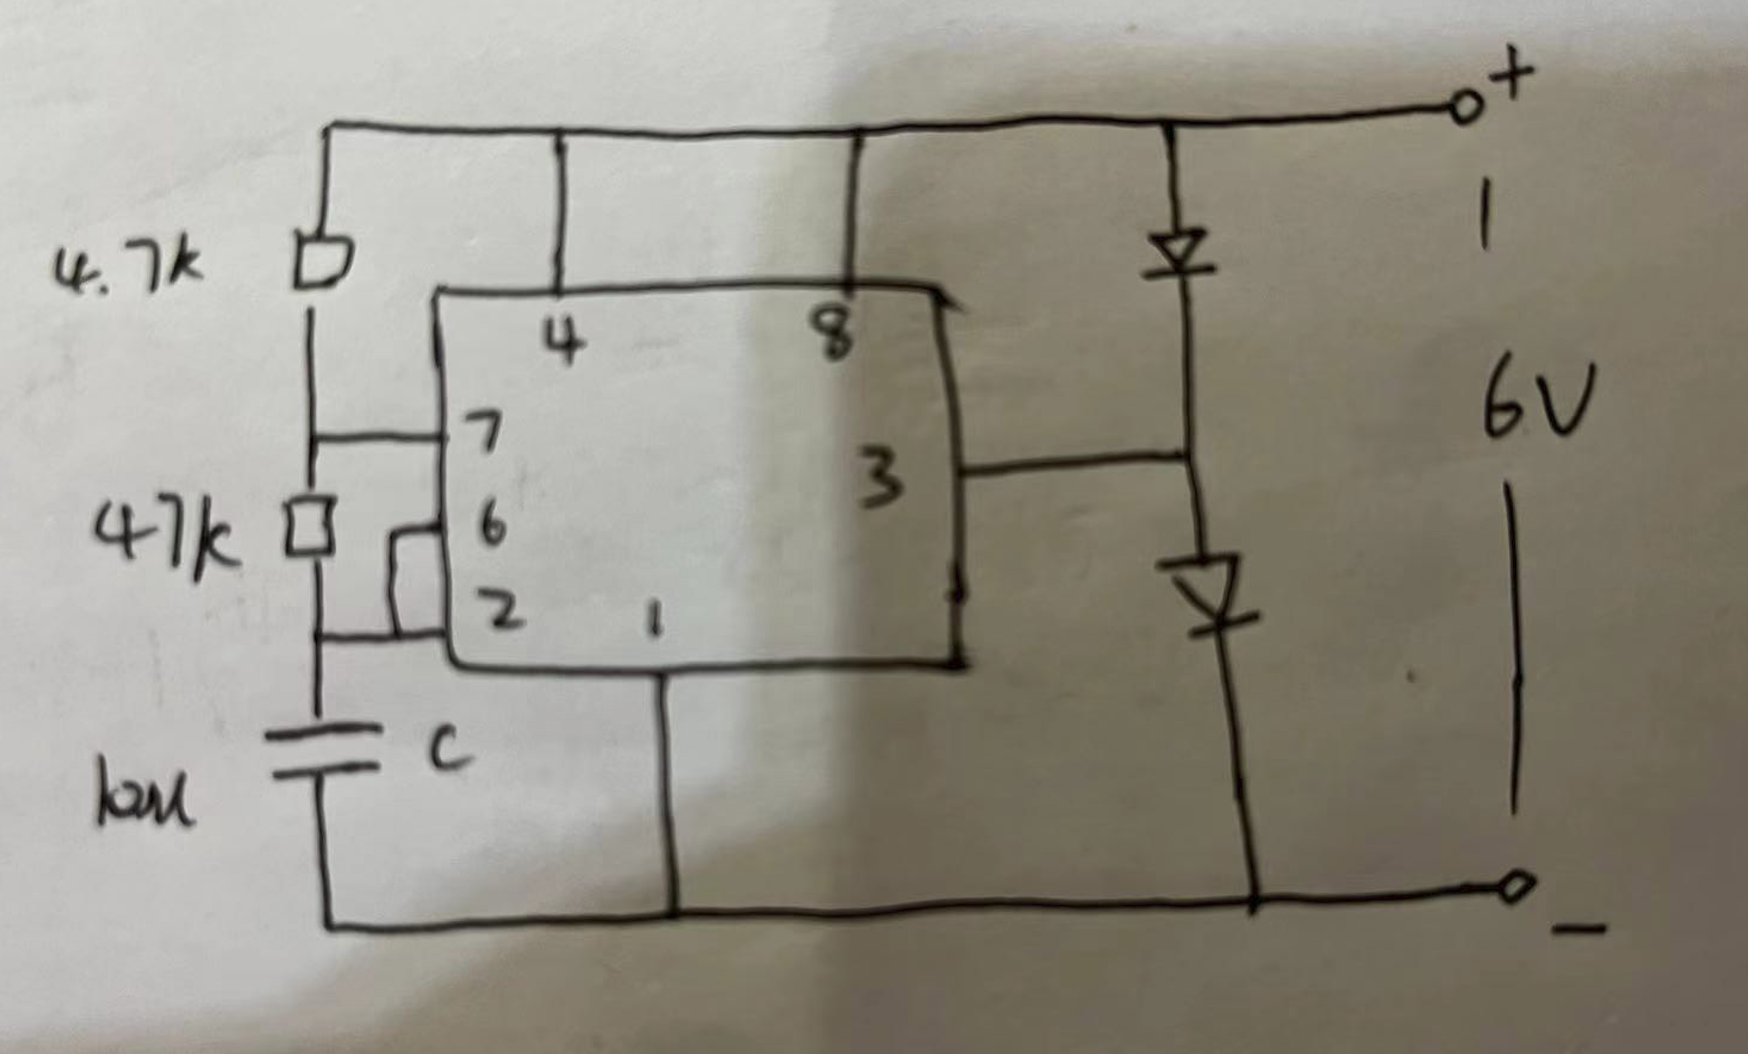 +
4.7k
4
8
7
6V
3
47k
6
2
1
C
10u
−